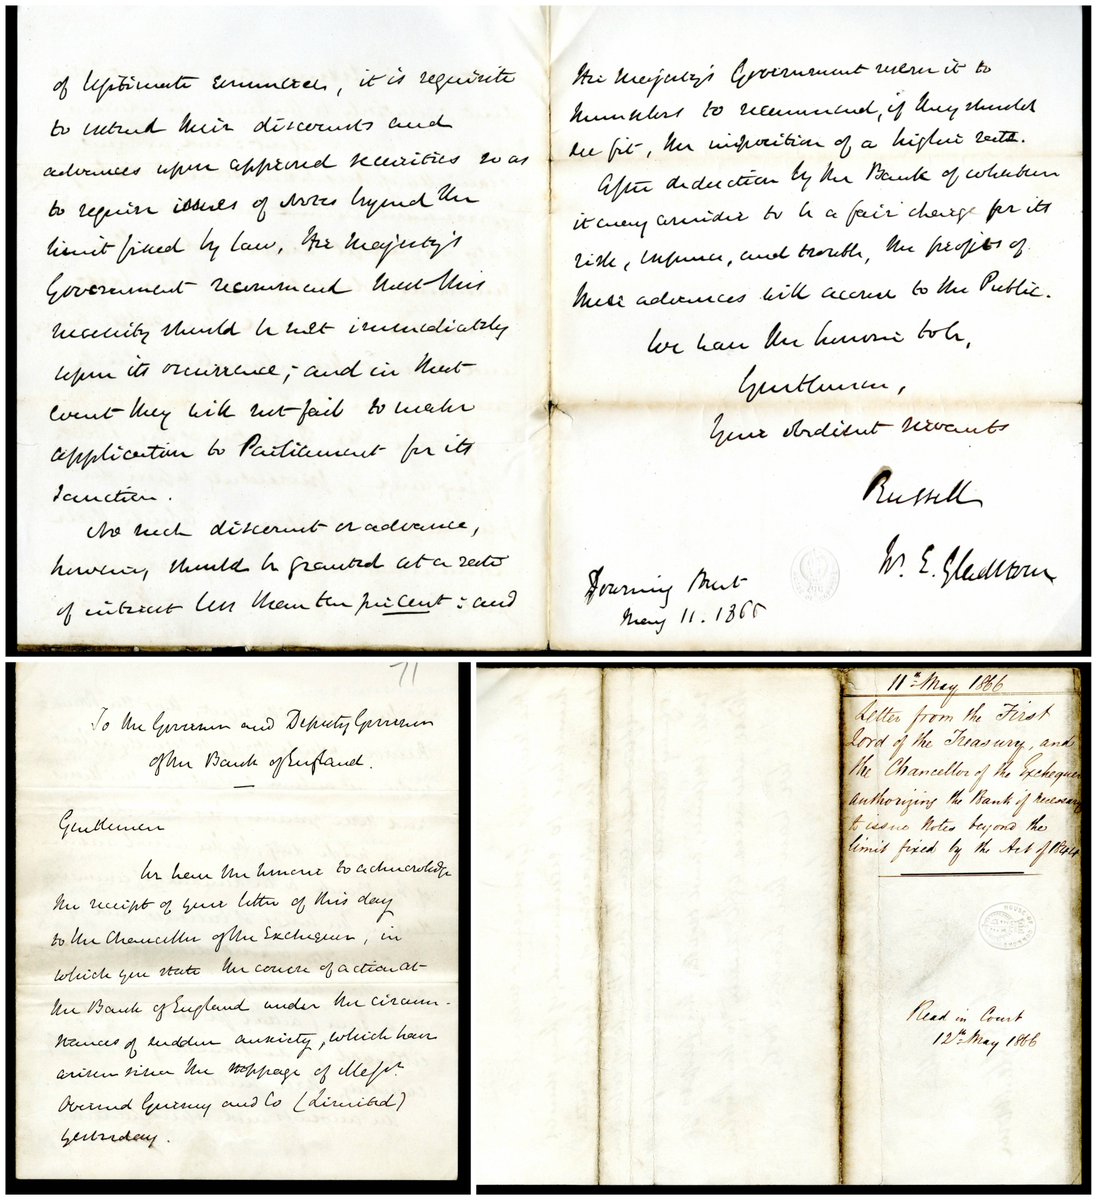 of legitimate commerce, it is requisite
to extend their discounts and
advances upon approved securities so as
to require issues of Notes beyond the
limit fixed by law, Her Majesty's
Government recommend that this
necessity should be met immediately
upon its occurrence; and in that
event they will not fail to make
application to Parliament for its
sanction.
No such discount or advance,
however, should be granted at a rate
of interest less than ten per cent: and
Her Majesty's Government reserve it to
themselves to recommend, if they should
see fit, the imposition of a higher rate.
After deduction by the Bank of whatever
it may consider to be a fair charge for its
risk, expense, and trouble, the profits of
these advances will accrue to the Public.
We have the honour to be,
Gentlemen,
Your obedient servants
Russell
W. E. Gladstone
Downing Street
May 11. 1866
71
To the Governor and Deputy Governor
of the Bank of England.
Gentlemen
We have the honour to acknowledge
the receipt of your letter of this day
to the Chancellor of the Exchequer, in
which you state the course of action at
the Bank of England under the circum-
stances of sudden anxiety, which have
arisen since the stoppage of Messrs.
Overend Gurney and Co (Limited)
yesterday.
11th May 1866
Letter from the First
Lord of the Treasury, and
the Chancellor of the Exchequer
authorizing the Bank if necessary
to issue Notes beyond the
limit fixed by the Act of 1844
Read in Court
12th May 1866